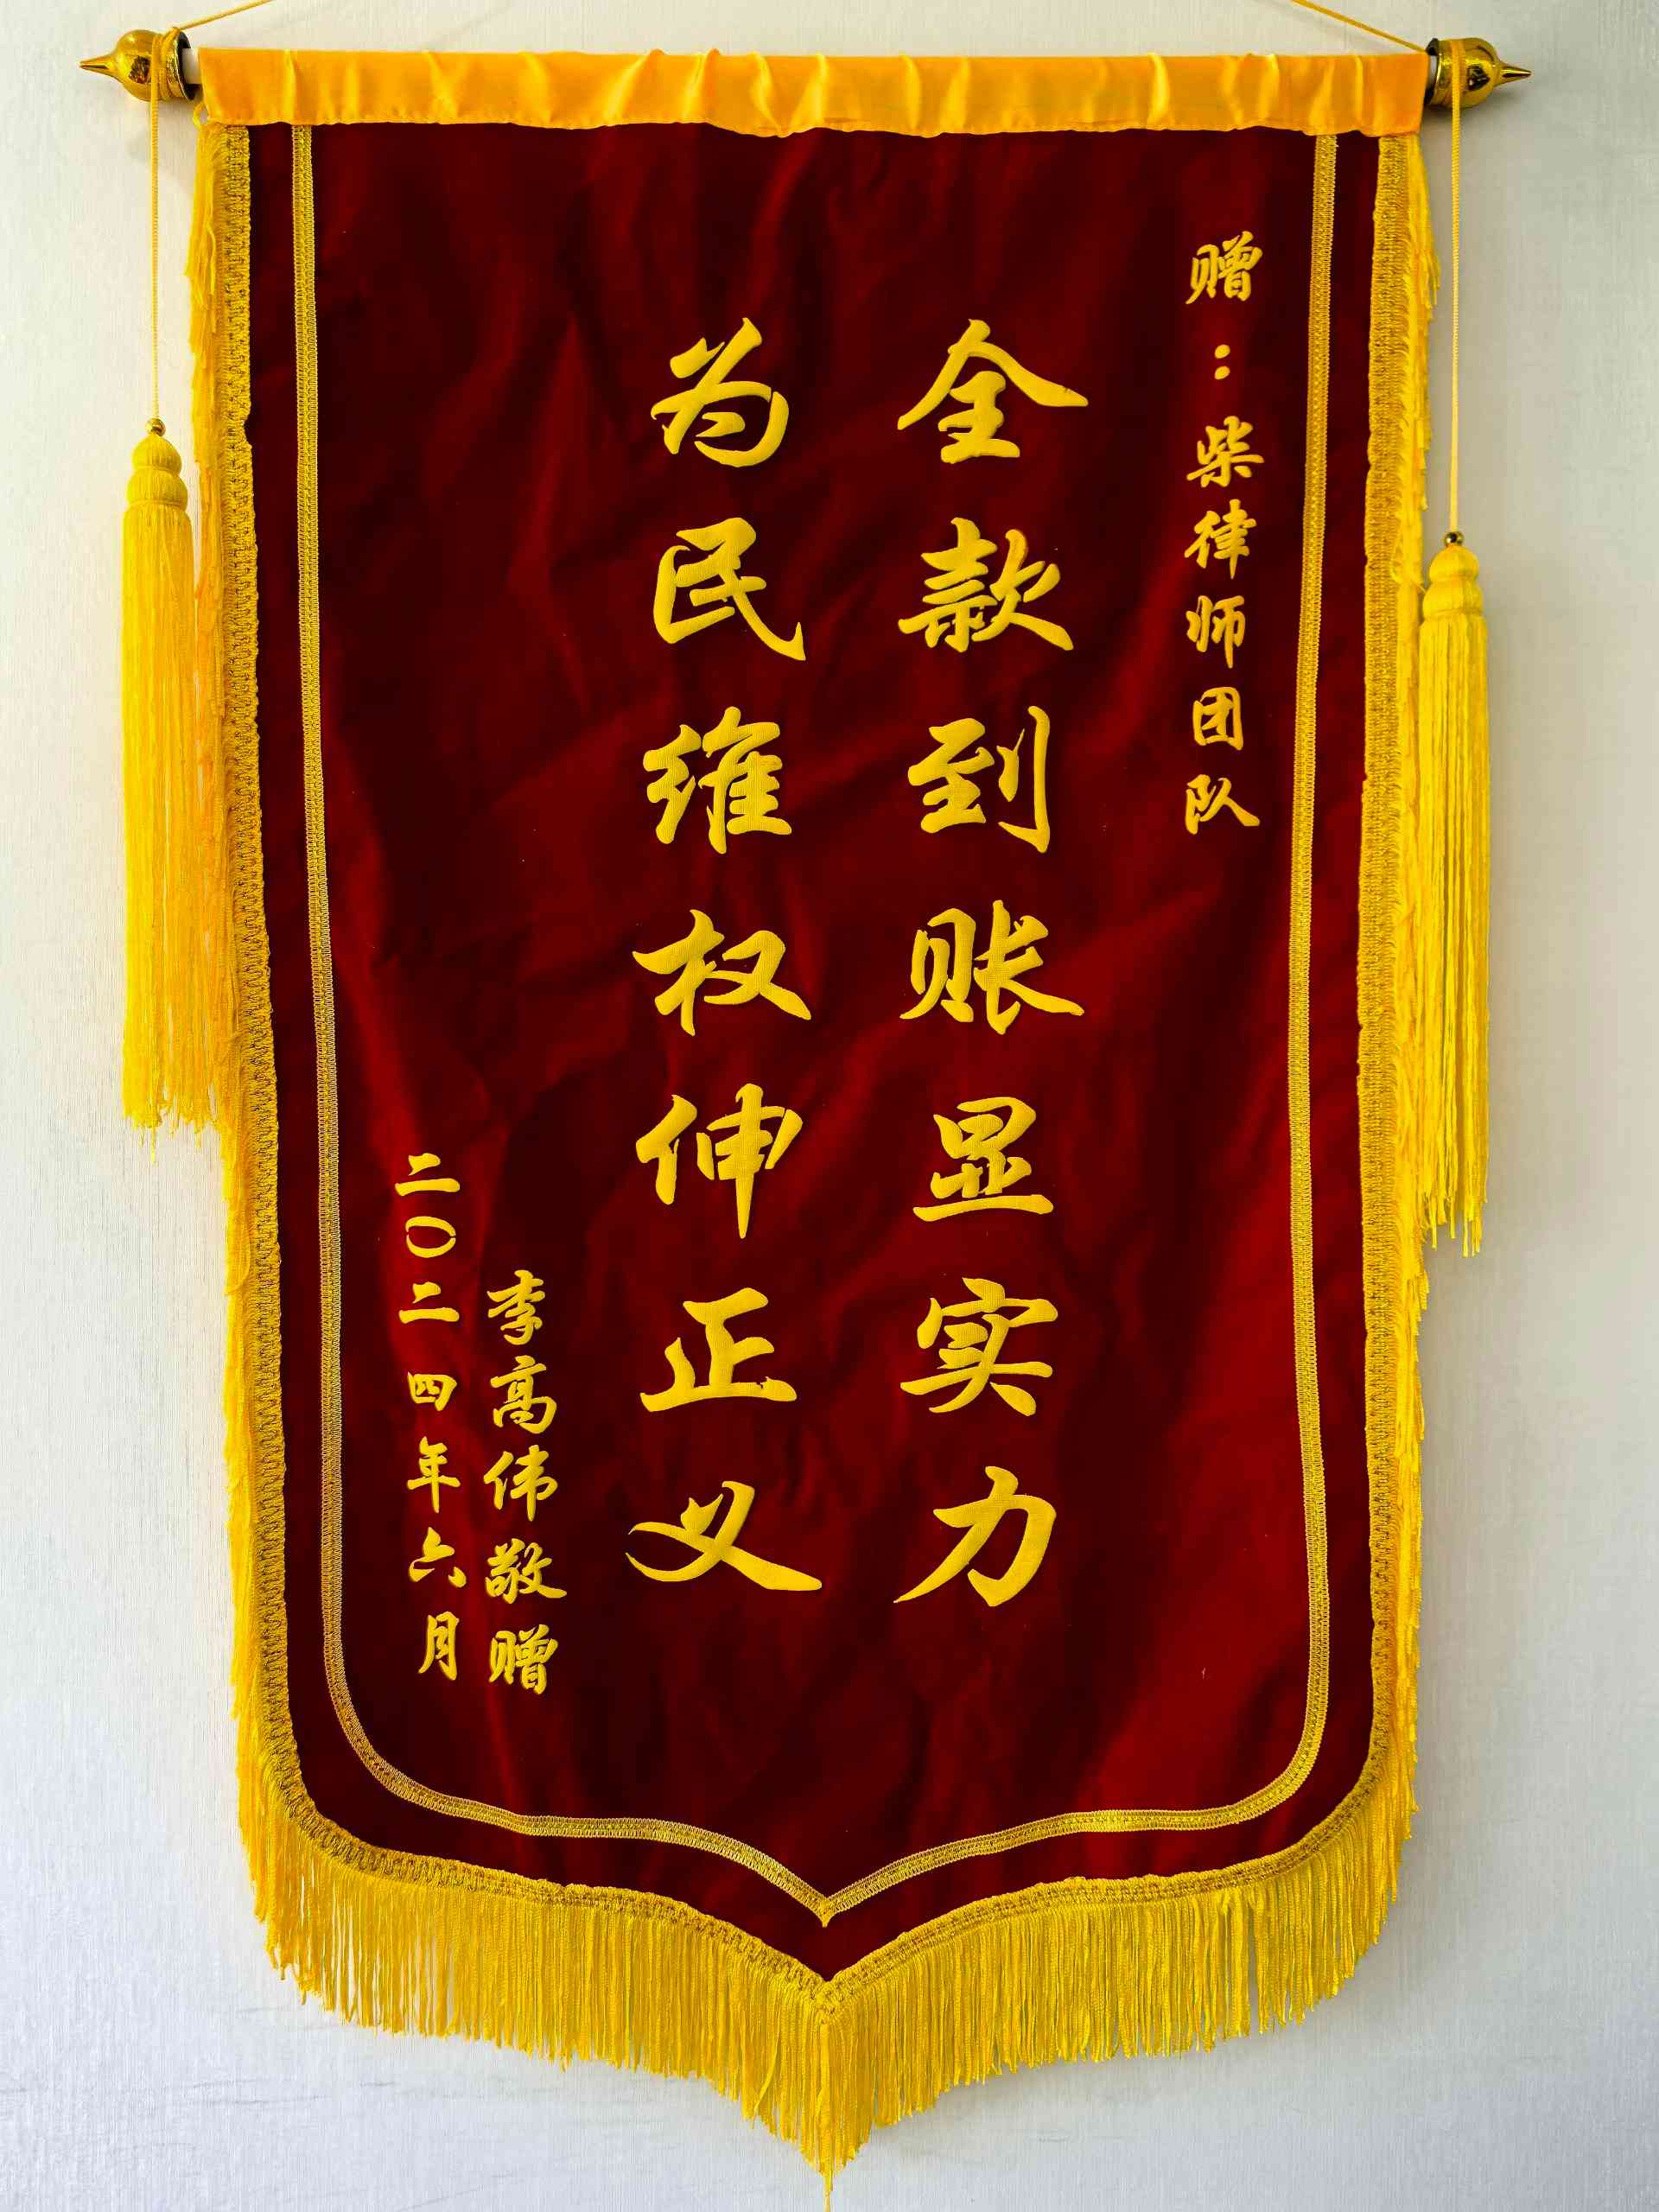 赠：柴律师团队
全款到账显实力
为民维权伸正义
李高伟敬赠
二〇二四年六月